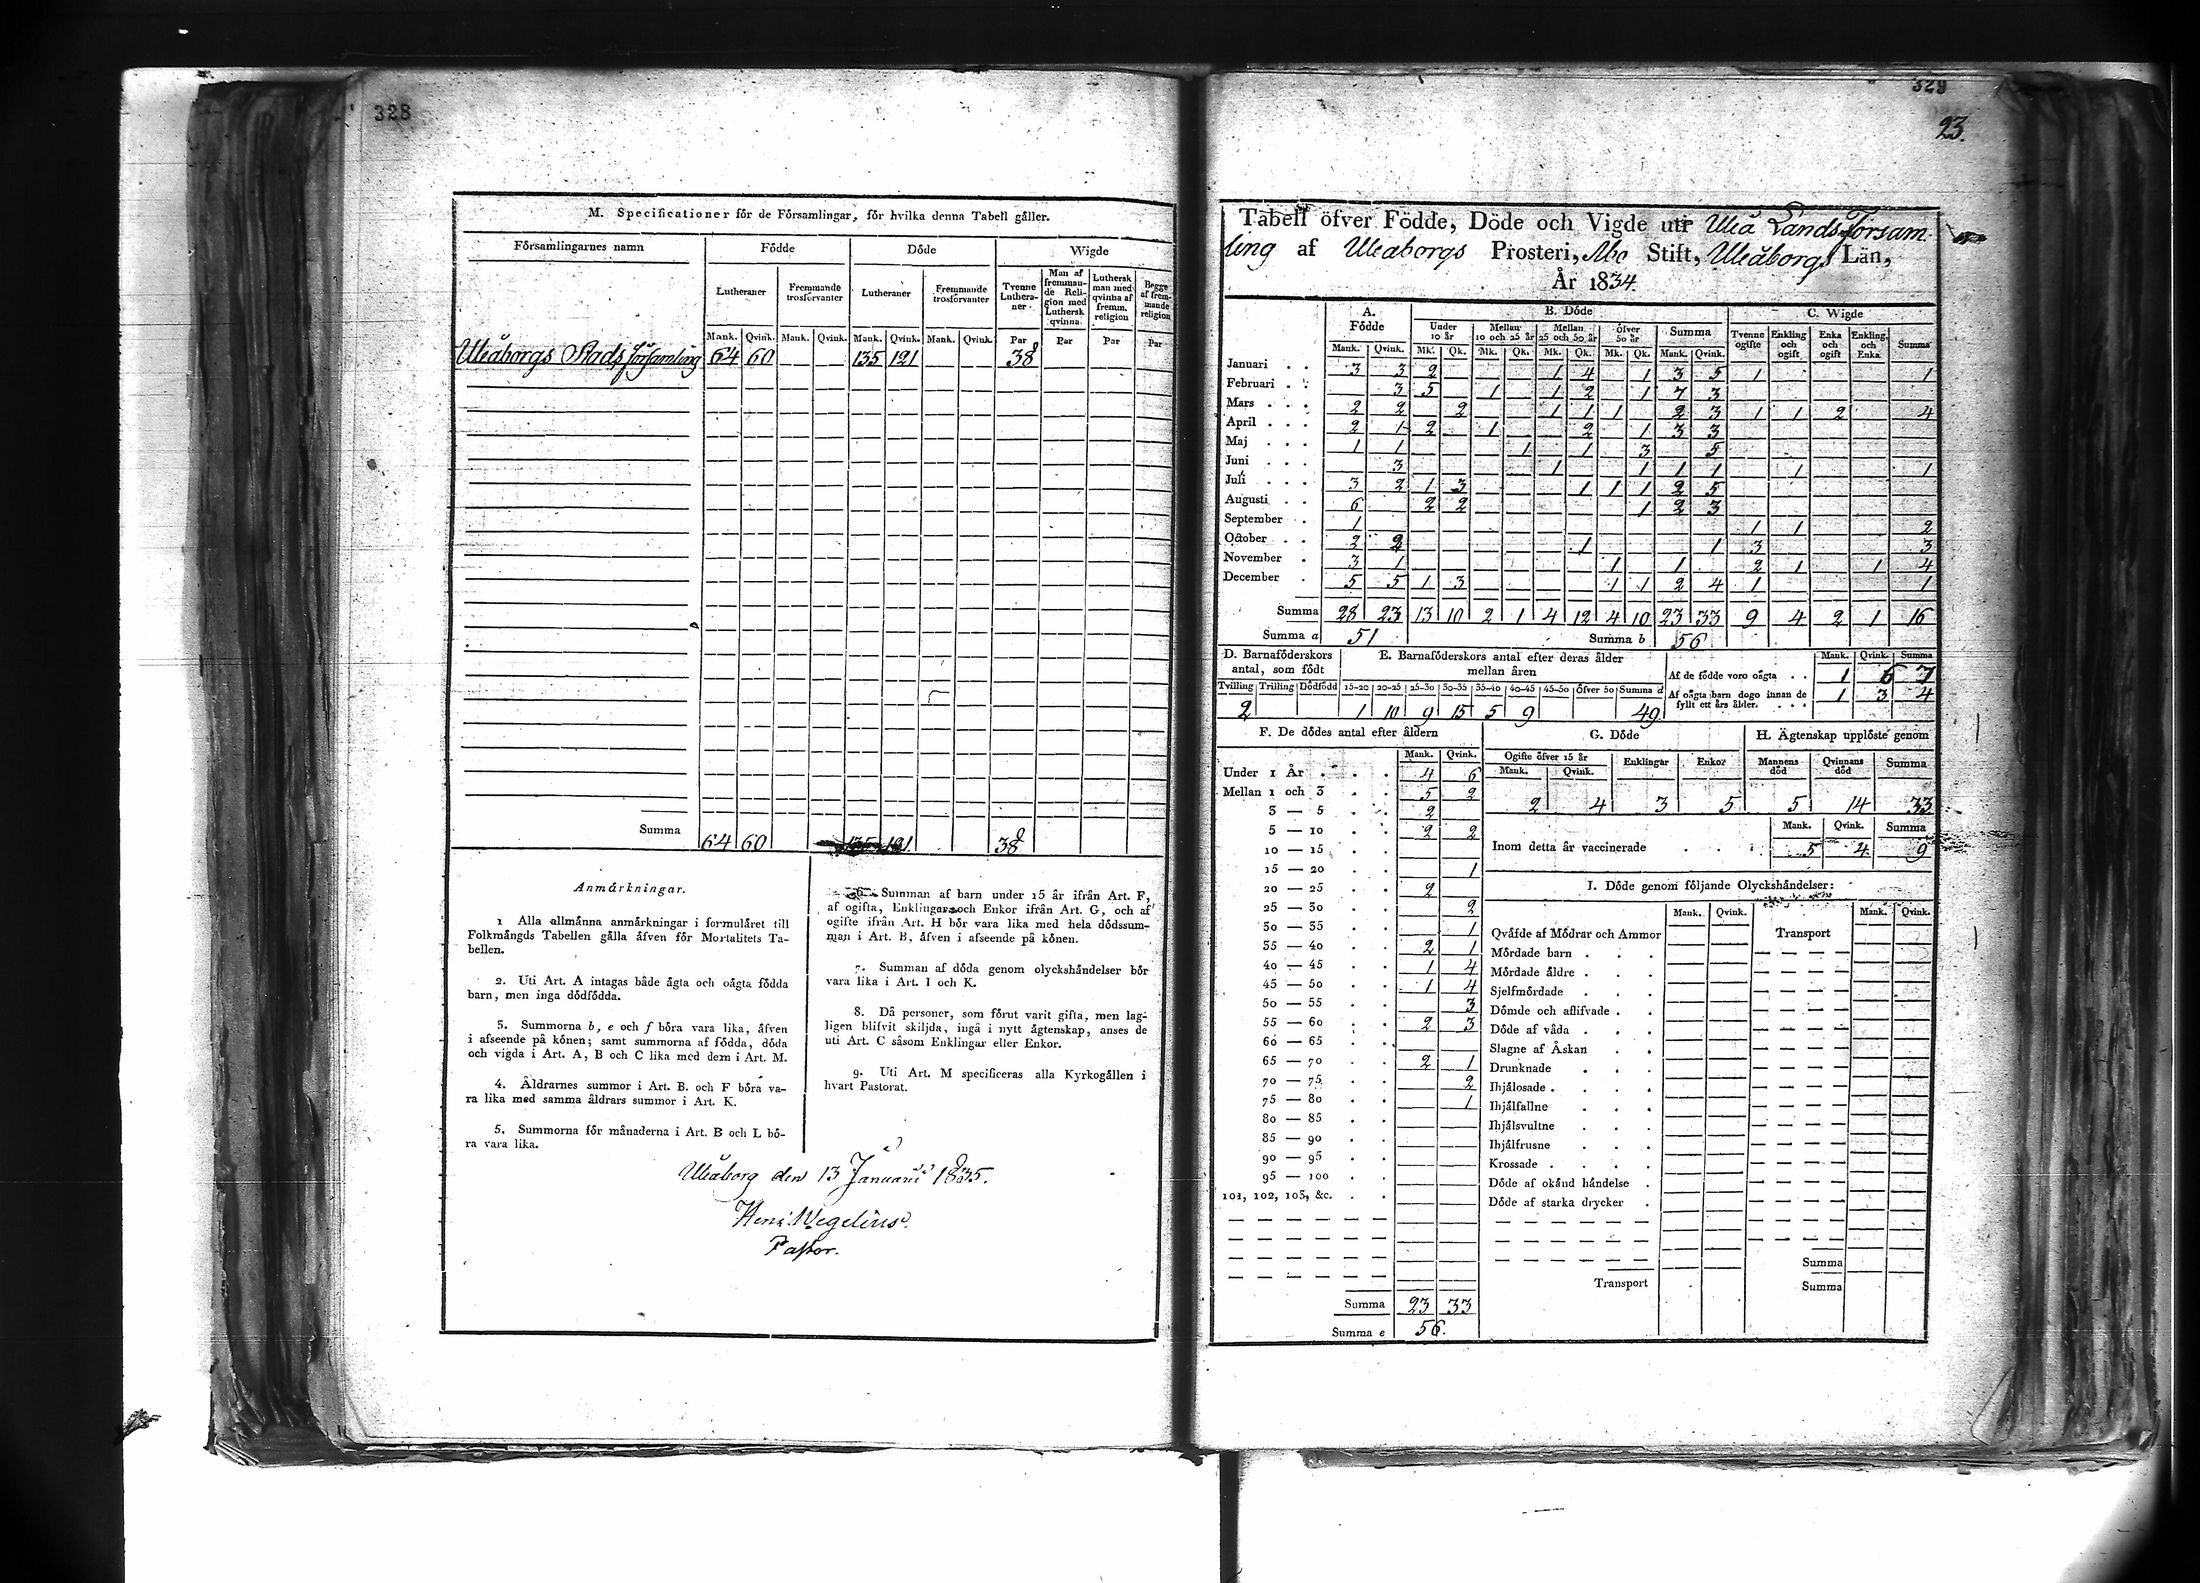 328
M. Specificationer för de Församlingar, för hvilka denna Tabell gäller.
Församlingarnes namn Födde Döde Wigde
Lutheraner Fremmande trosförvanter Lutheraner Fremmande trosförvanter Tvenne Lutheraner Man af fremmande Religion med Luthersk qvinna Luthersk man med qvinna af fremm. religion Begge af fremmande religion
Mank. Qvink. Mank. Qvink. Mank. Qvink. Mank. Qvink. Par Par Par Par
Uleåborgs Stads församling 64 60 135 121 38
Summa 64 60 135 121 38
Anmärkningar.
1 Alla allmänna anmärkningar i formuläret till
Folkmängds Tabellen gälla äfven för Mortalitets Ta-
bellen.
2. Uti Art. A intagas både ägta och oägta födda
barn, men inga dödfödda.
3. Summorna b, e och f böra vara lika, äfven
i afseende på könen; samt summorna af födda, döda
och vigda i Art. A, B och C lika med dem i Art. M.
4. Åldrarnes summor i Art. B. och F böra va-
ra lika med samma åldrars summor i Art. K.
5. Summorna för månaderna i Art. B och L bö-
ra vara lika.
6. Summan af barn under 15 år ifrån Art. F,
af ogifta, Enklingar och Enkor ifrån Art. G, och af
ogifte ifrån Art. H bör vara lika med hela dödssum-
man i Art. B, äfven i afseende på könen.
7. Summan af döda genom olyckshändelser bör
vara lika i Art. I och K.
8. Då personer, som förut varit gifta, men lag-
ligen blifvit skiljda, ingå i nytt ägtenskap, anses de
uti Art. C såsom Enklingar eller Enkor.
9. Uti Art. M specificeras alla Kyrkogällen i
hvart Pastorat.
Uleåborg den 13 Januarii 1835.
Henr. Wegelius.
Pastor.
329
23.
Tabell öfver Födde, Döde och Vigde uti Uleå Lands Församling
af Uleåborgs Prosteri, Åbo Stift, Uleåborgs Län,
År 1834.
A. Födde B. Döde C. Wigde
Under 10 år Mellan 10 och 25 år Mellan 25 och 50 år Öfver 50 år Summa Tvenne ogifte Enkling och ogift Enka och ogift Enkling och Enka Summa
Mank. Qvink. Mk. Qk. Mk. Qk. Mk. Qk. Mk. Qk. Mank. Qvink.
Januari 3 3 2 1 4 1 3 5 1 1
Februari 3 5 1 1 2 1 7 3
Mars 2 2 2 1 1 1 2 3 1 1 2 4
April 2 1 2 1 2 1 3 3
Maj 1 1 1 1 3 5
Juni 3 1 1 1 1 1 1
Juli 3 2 1 3 1 1 1 2 5
Augusti 6 2 2 1 2 3
September 1 1 1 2
October 2 2 1 1 3 3
November 3 1 1 1 2 1 1 4
December 5 5 1 3 1 1 2 4 1 1
Summa 28 23 13 10 2 1 4 12 4 10 23 33 9 4 2 1 16
Summa a 51 Summa b 56
D. Barnaföderskors antal, som födt
Tvilling Trilling Dödfödd
2
E. Barnaföderskors antal efter deras ålder mellan åren
15-20 20-25 25-30 30-35 35-40 40-45 45-50 Öfver 50 Summa d
1 10 9 15 5 9 49
Mank. Qvink. Summa
Af de födde voro oägta 1 6 7
Af oägta barn dogo innan de fyllt ett års ålder. 1 3 4
F. De dödes antal efter åldern
Mank. Qvink.
Under 1 År 4 6
Mellan 1 och 3 5 2
3 — 5 2
5 — 10 2 2
10 — 15
15 — 20 1
20 — 25 2
25 — 30 2
30 — 35 1
35 — 40 2 1
40 — 45 1 4
45 — 50 1 4
50 — 55 3
55 — 60 2 3
60 — 65
65 — 70 2 1
70 — 75 2
75 — 80 1
80 — 85
85 — 90
90 — 95
95 — 100
101, 102, 103, &c.
Summa 23 33
Summa e 56.
G. Döde
Ogifte öfver 15 år Enklingar Enkor
Mank. Qvink.
2 4 3 5
H. Ägtenskap upplöste genom
Mannens död Qvinnans död Summa
5 14 33
Mank. Qvink. Summa
Inom detta år vaccinerade 5 4 9
I. Döde genom följande Olyckshändelser:
Mank. Qvink. Mank. Qvink.
Qväfde af Mödrar och Ammor Transport
Mördade barn
Mördade äldre
Sjelfmördade
Dömde och aflifvade
Döde af våda
Slagne af Åskan
Drunknade
Ihjälosade
Ihjälfallne
Ihjälsvultne
Ihjälfrusne
Krossade
Döde af okänd händelse
Döde af starka drycker
Summa
Transport Summa